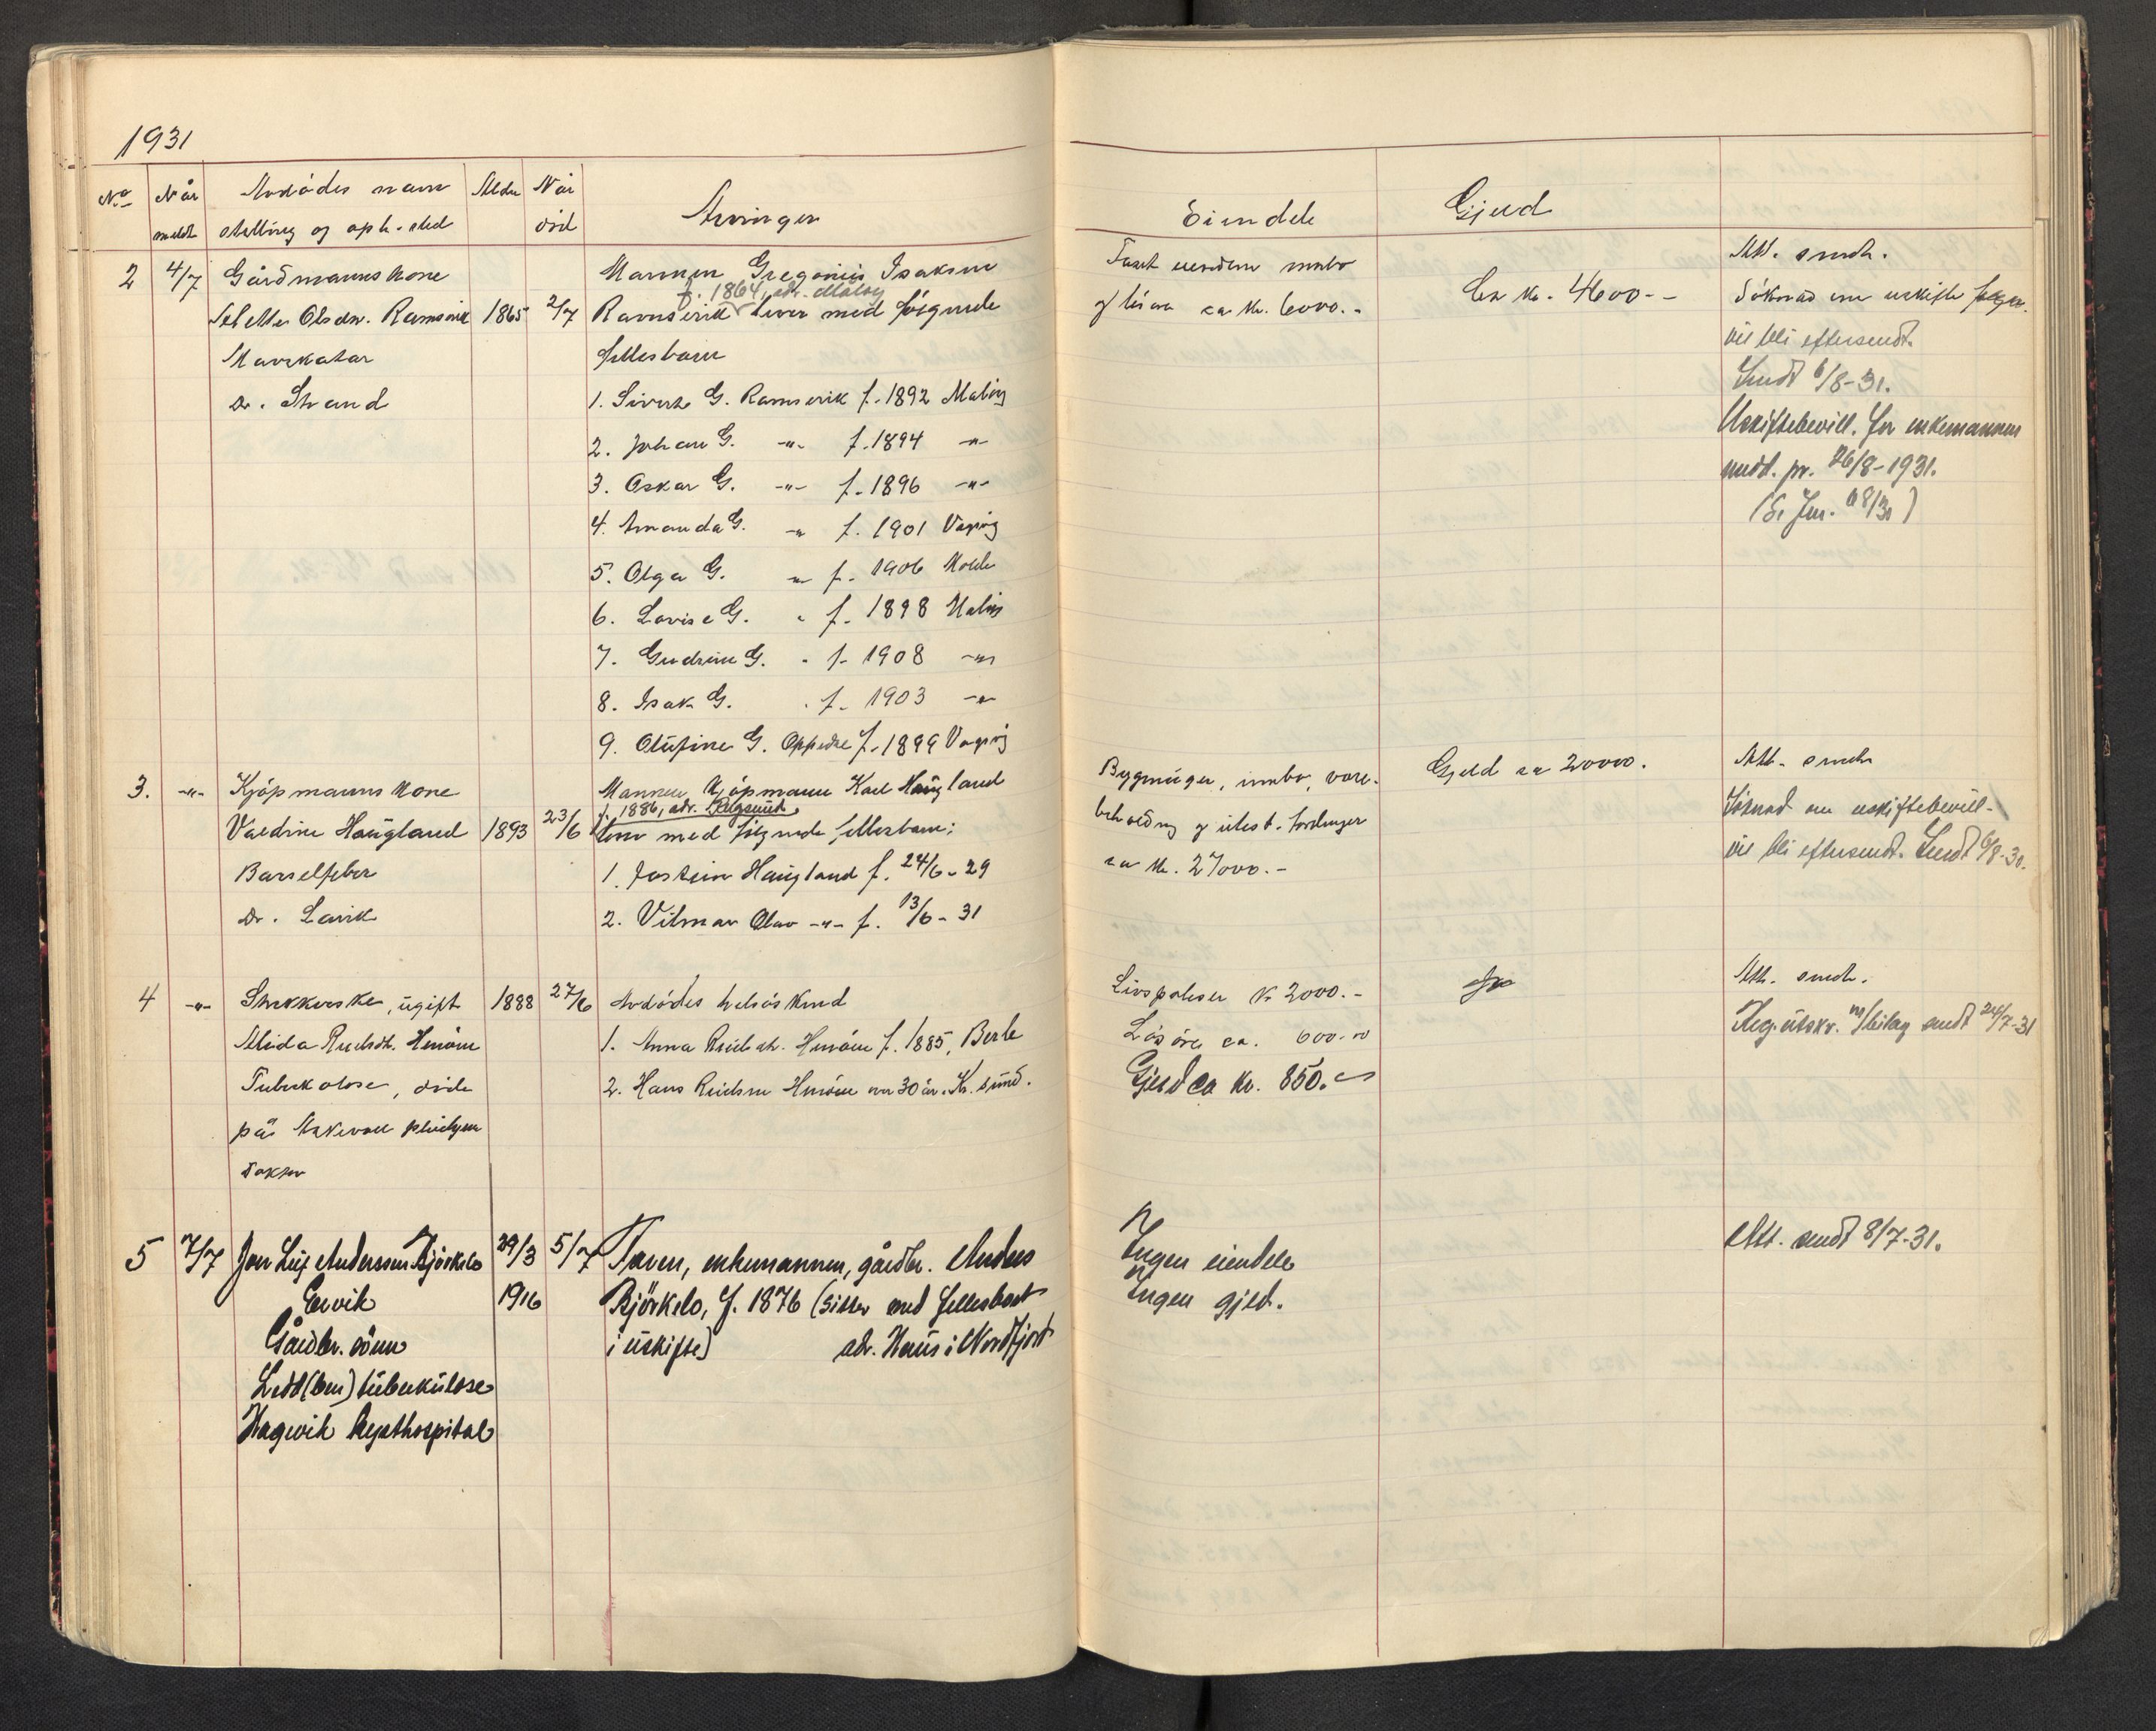 1931
No Når meldt Avdødes navn stilling og oph. sted Alder Når död Arvinger Eiendele Gjeld
2 4/7 Gårdmannskone
Olsdtr. Ramsvik 1865 2/7
Marskatar
Dr. Strand
Mannen Gregorius Isaksen
f. 1864, adr. Måløy
Ramsvik lever med følgende
fellesbarn
1. Sivert G. Ramsvik f. 1892 Måløy
2. Johan G. -"- f. 1894 -"-
3. Oskar G. -"- f. 1896 -"-
4. Amanda G. -"- f. 1901 Vågsöy
5. Olga G. " f. 1906 Molde
6. Lovise G. " f. 1898 Måløy
7. Gudrun G. " f. 1908 -"-
8. Isak G. " f. 1903 -"-
9. Olufine G. Oppedal f. 1899 Vågsöy
Fast eiendom innbo
og løsøre ca kr. 6000.-
Ca kr. 4600.-
Att. sendt.
Söknad om uskifte
vil bli eftersendt.
Sendt 6/8-31.
Uskiftebevill. for enkemannen
medd. pr. 26/8-1931.
3. -"- Kjöpmannskone
Valdrine Haugland 1893 23/6
Barselfeber
Dr. Lavik
Mannen Kjöpmann Karl Haugland
f. 1886, adr. Rugsund
lever med følgende fellesbarn:
1. Jostein Haugland f. 24/6-29
2. Vilmar Olav -"- f. 13/6-31
Bygninger, innbo, vare-
beholdng og utest. fordringer
ca kr. 27000.-
Gjeld ca 20000.
Att. sendt
Söknad om uskiftebevill.
vil bli eftersendt. Sendt 6/8-30.
4 -"- ugift 1888 27/6
Alida
Tuberkolose, döde
på Askevoll pleiehjem
Avdødes helsösken
1. Anna f. 1885, Berle
2. Hans over 30 år. Kr. sund.
Livspoliser Kr 2000.-
Løsøre ca. 600.00
Gjeld ca kr. 850.-
Att. sendt.
Reg. utskr. m/bilag sendt 24/7-31
5 7/7 Jon Leif Anderssen Björkelo 29/3 5/7
Ervik 1916
Gårdbr. sönn
Ledd(ben)tuberkulose
Hagevik Kysthospital
Faren, enkemannen, gårdbr. Anders
Björkelo, f. 1876 (sitter med fellesboet
i uskifte) adr. Haus i Nordfjord
Ingen eiendele
Ingen gjeld.
Att. sendt 8/7-31.